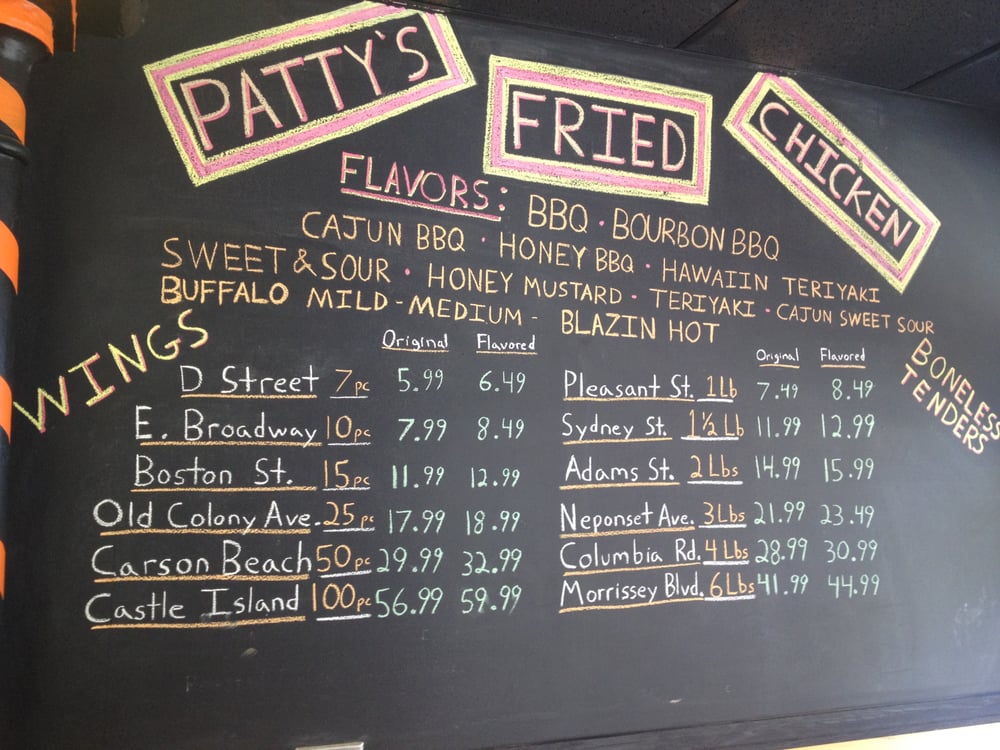 PATTY'S FRIED CHICKEN
FLAVORS: BBQ · BOURBON BBQ
CAJUN BBQ · HONEY BBQ · HAWAIIN TERIYAKI
SWEET & SOUR · HONEY MUSTARD · TERIYAKI · CAJUN SWEET SOUR
BUFFALO MILD - MEDIUM - BLAZIN HOT
WINGS
Original Flavored
D Street 7pc 5.99 6.49
E. Broadway 10pc 7.99 8.49
Boston St. 15pc 11.99 12.99
Old Colony Ave. 25pc 17.99 18.99
Carson Beach 50pc 29.99 32.99
Castle Island 100pc 56.99 59.99
BONELESS
TENDERS
Original Flavored
Pleasant St. 1Lb 7.49 8.49
Sydney St. 1½ Lb 11.99 12.99
Adams St. 2Lbs 14.99 15.99
Neponset Ave. 3Lbs 21.99 23.49
Columbia Rd. 4Lbs 28.99 30.99
Morrissey Blvd. 6Lbs 41.99 44.99